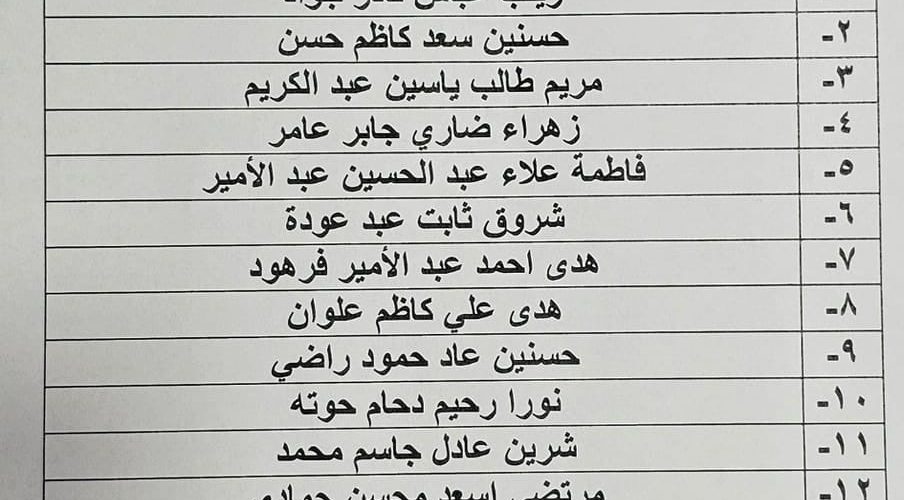 ٢- حسنين سعد كاظم حسن
٣- مريم طالب ياسين عبد الكريم
٤- زهراء ضاري جابر عامر
٥- فاطمة علاء عبد الحسين عبد الأمير
٦- شروق ثابت عبد عودة
٧- هدى احمد عبد الأمير فرهود
٨- هدى علي كاظم علوان
٩- حسنين عاد حمود راضي
١٠- نورا رحيم دحام حوته
١١- شرين عادل جاسم محمد
١٢- مرتضى اسعد محسن